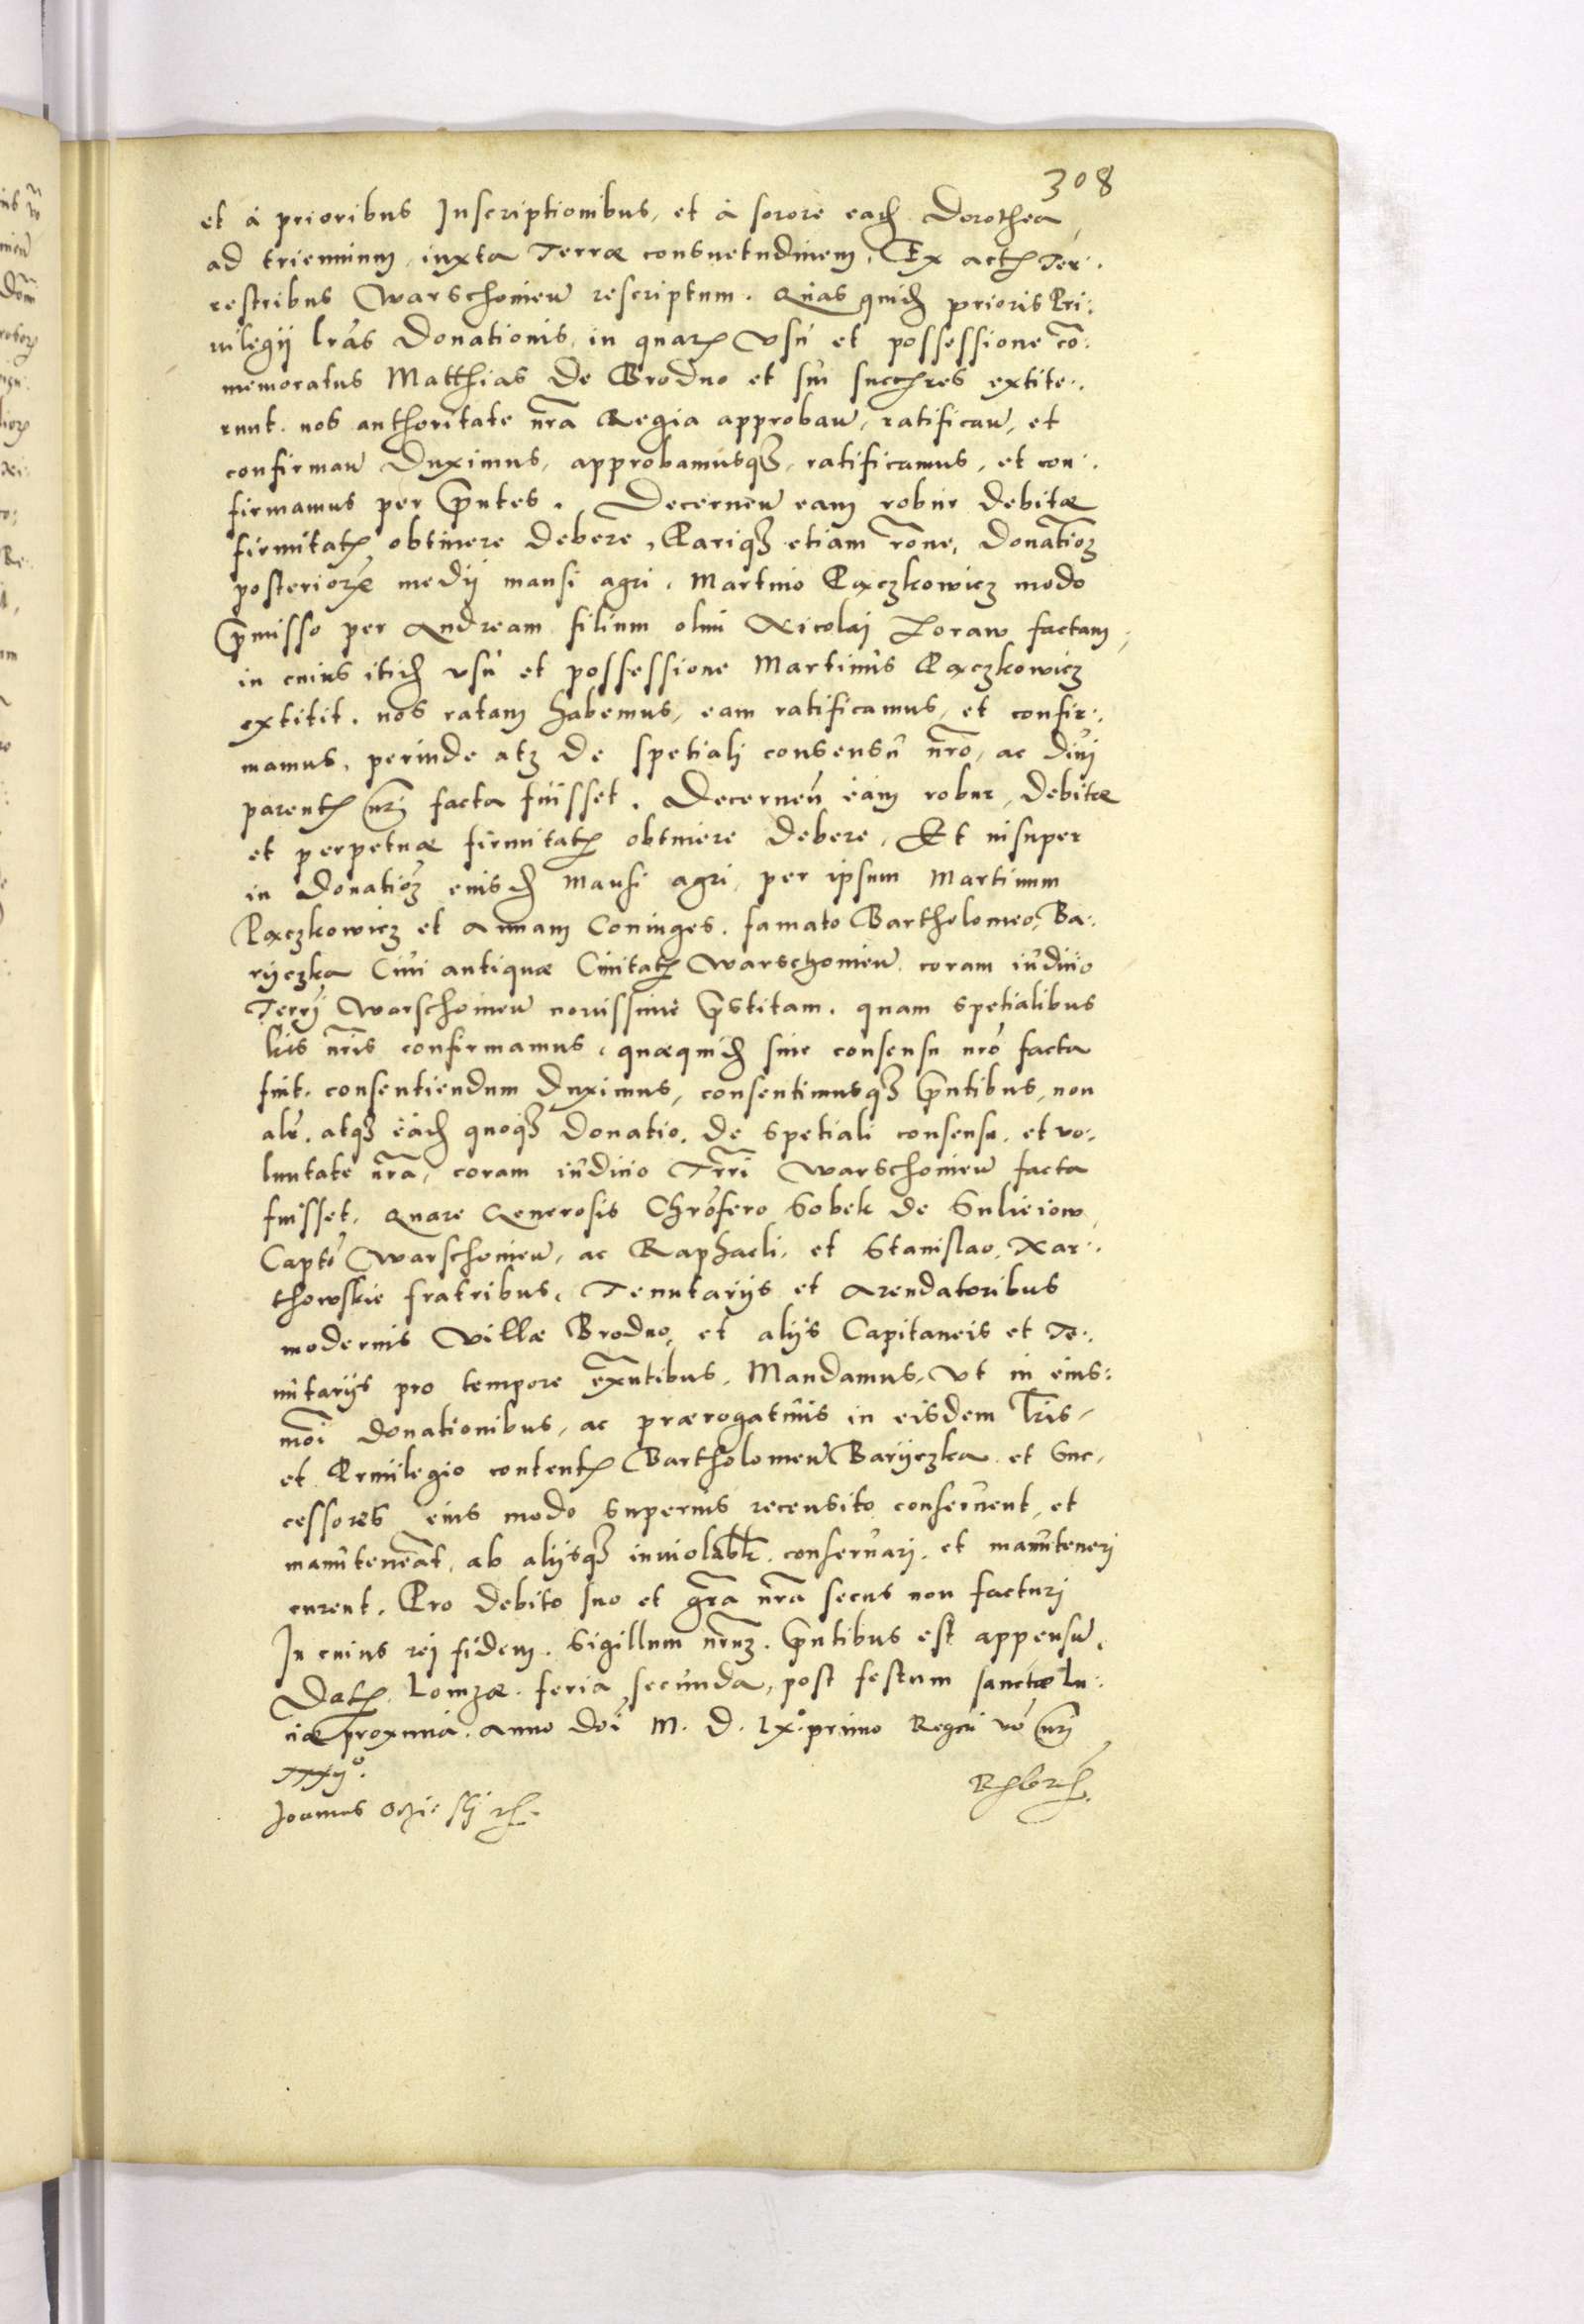 308
et à prioribus Inscriptionibus, et à sorore ead. Dorothea,
ad triennium, iuxta Terræ consuetudinem, Ex act. Ter:
restribus Warschovien rescriptum. Quas quid. prioris Pri:
vilegij lras Donationis, in quar. vsu et possessione co:
memoratus Matthias de Brodno et sui succres extite:
runt. nos authoritate nra Regia approban, ratifican, et
confirman duximus, approbamusq3, ratificamus, et con:
firmamus per pntes. Decernen eam robur debitæ
firmitat. obtinere debere, Pariq3 etiam rone, Donatio3
posteriore medij mansi agri, Martino Pączkowicz modo
pmisso per Andream filium olim Nicolaj Zoraw factam,
in cuius itid. vsu et possessione Martinus Pączkowicz
extitit. nos ratam habemus, eam ratificamus, et confir:
mamus, perinde atq3 de spetialj consensu nro, ac divj
parent. nrj facta fuisset. Decernen eam robur, debitæ
et perpetuæ firmitat. obtinere debere, Et insuper
in Donatio3 eiusd. mansi agri, per ipsum Martinum
Pączkowicz et Annam Coniuges. famato Bartholomeo, Ba:
ryczka Civi antiquæ Civitat. Warschovien. coram iudicio
Terrj Warschovien novissime pstitam. quam spetialibus
lris nris confirmamus, quæquid. sine consensu nro facta
fuit. consentiendum duximus, consentimusq3 pntibus, non
alr. atq3 ead. quoq3 Donatio. de spetiali consensu, et vo:
luntate nra, coram iudicio Trri Warschovien facta
fuisset, Quare Generosis Chrofero Sobek de Sulieiow,
Capto Warschovien, ac Raphaeli, et Stanislao, Nar:
thowskie fratribus, Tenutarijs et Arendatoribus
modernis villæ Brodno, et alijs Capitaneis et Te:
nutarijs pro tempore exntibus, Mandamus, vt in eius:
moi donationibus, ac prærogativis in eisdem lris,
et Privilegio content. Bartholomeu Baryczka et Suc,
cessores eius modo superius recensito conservent, et
manuteneat, ab alijsq3 inviolablr. conservarj, et manutenerj
curent, Pro debito suo et gra nra secus non facturj
In cuius rej fidem. Sigillum nrum. pntibus est appensu.
Dat. Lomzæ. feria secunda, post festum sanctæ Lu:
ciæ proxima. Anno Doi M. D. lx.° primo Regni vo nrj
xxxij°.